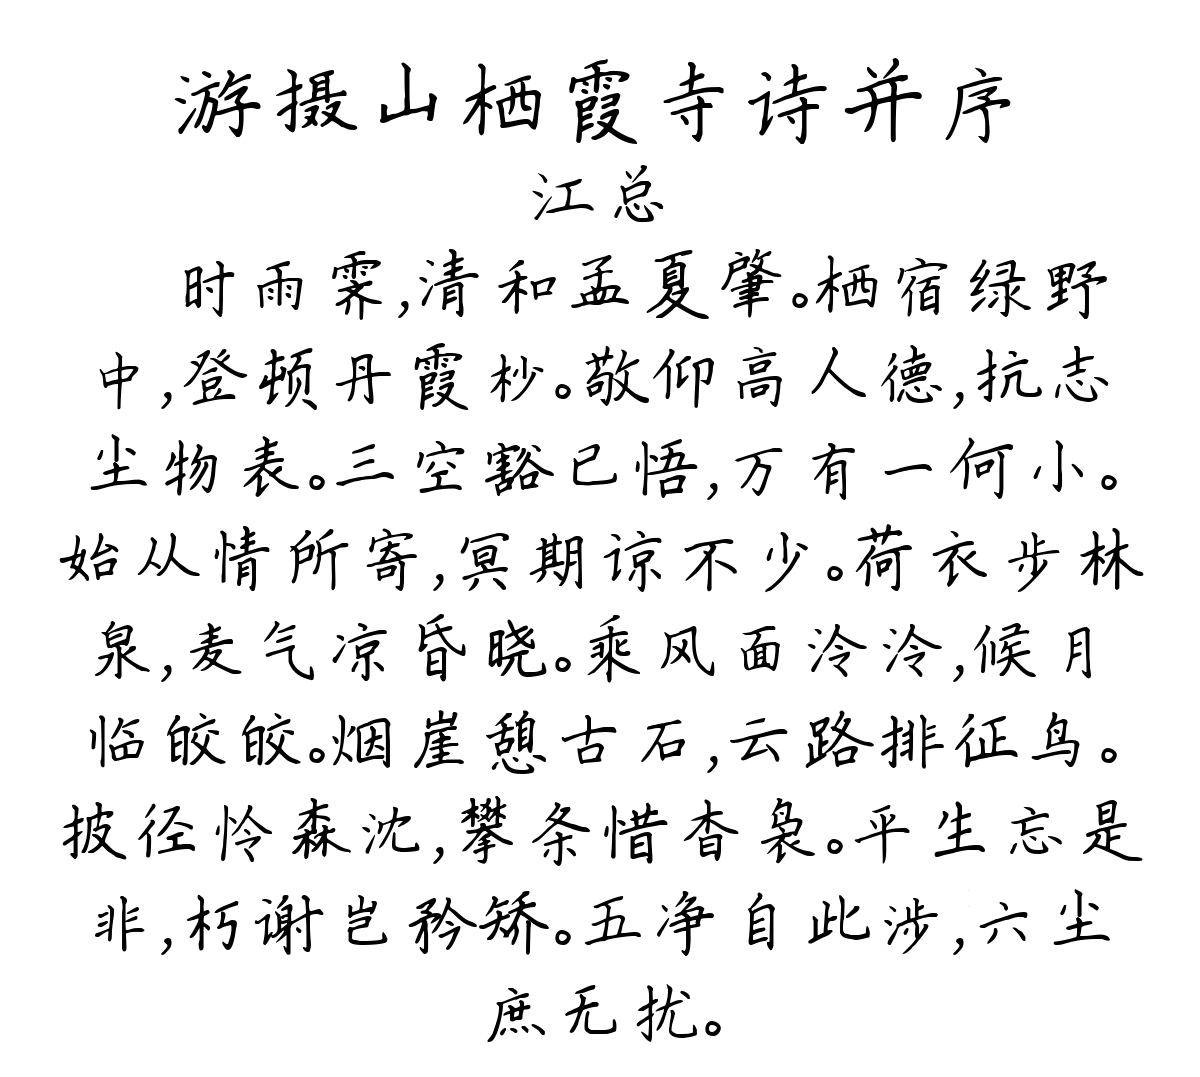 游摄山栖霞寺诗并序
江总
时雨霁,清和孟夏肇。栖宿绿野
中,登顿丹霞杪。敬仰高人德,抗志
尘物表。三空豁已悟,万有一何小。
始从情所寄,冥期谅不少。荷衣步林
泉,麦气凉昏晓。乘风面泠泠,候月
临皎皎。烟崖憩古石,云路排征鸟。
披径怜森沈,攀条惜杳袅。平生忘是
非,朽谢岂矜矫。五净自此涉,六尘
庶无扰。